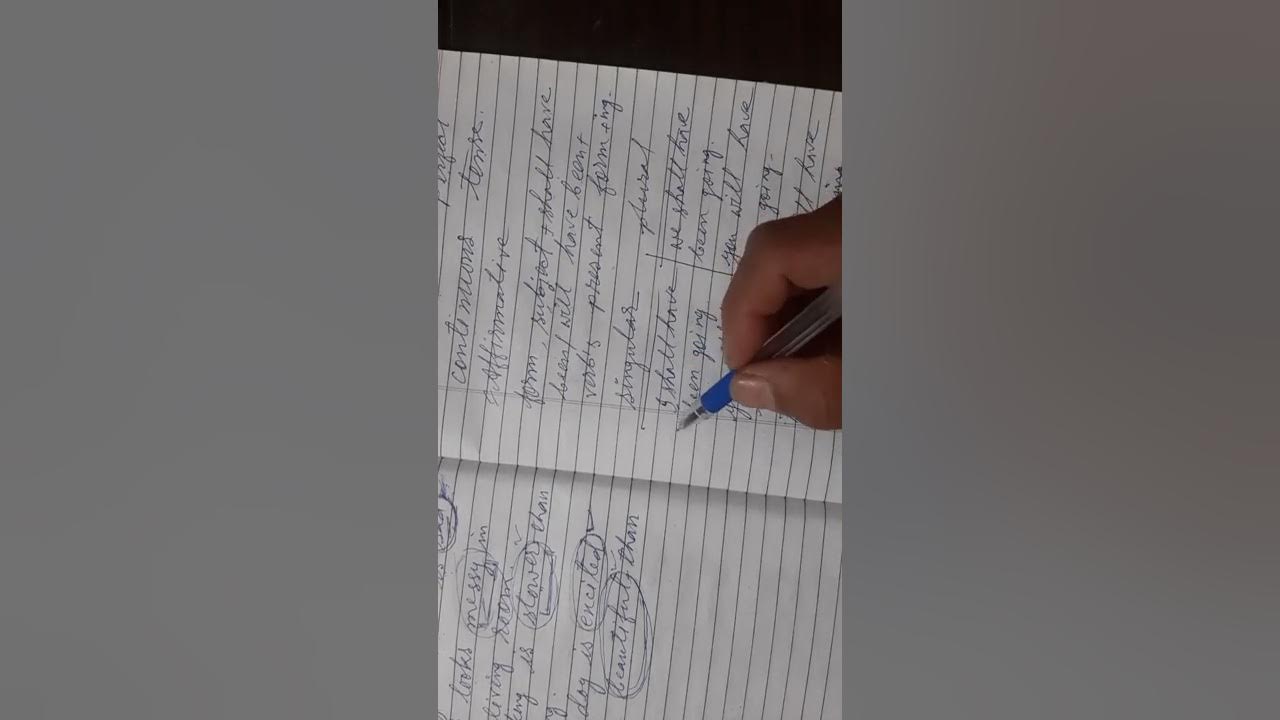 looks messy in
room.
is slower than
dog is excited
beautiful than
continuous tense.
Affirmative
form, subject + shall have
been/ will have been +
verb's present form+ing.
singular plural
I shall have we shall have
been going been going.
you will have
going.
have